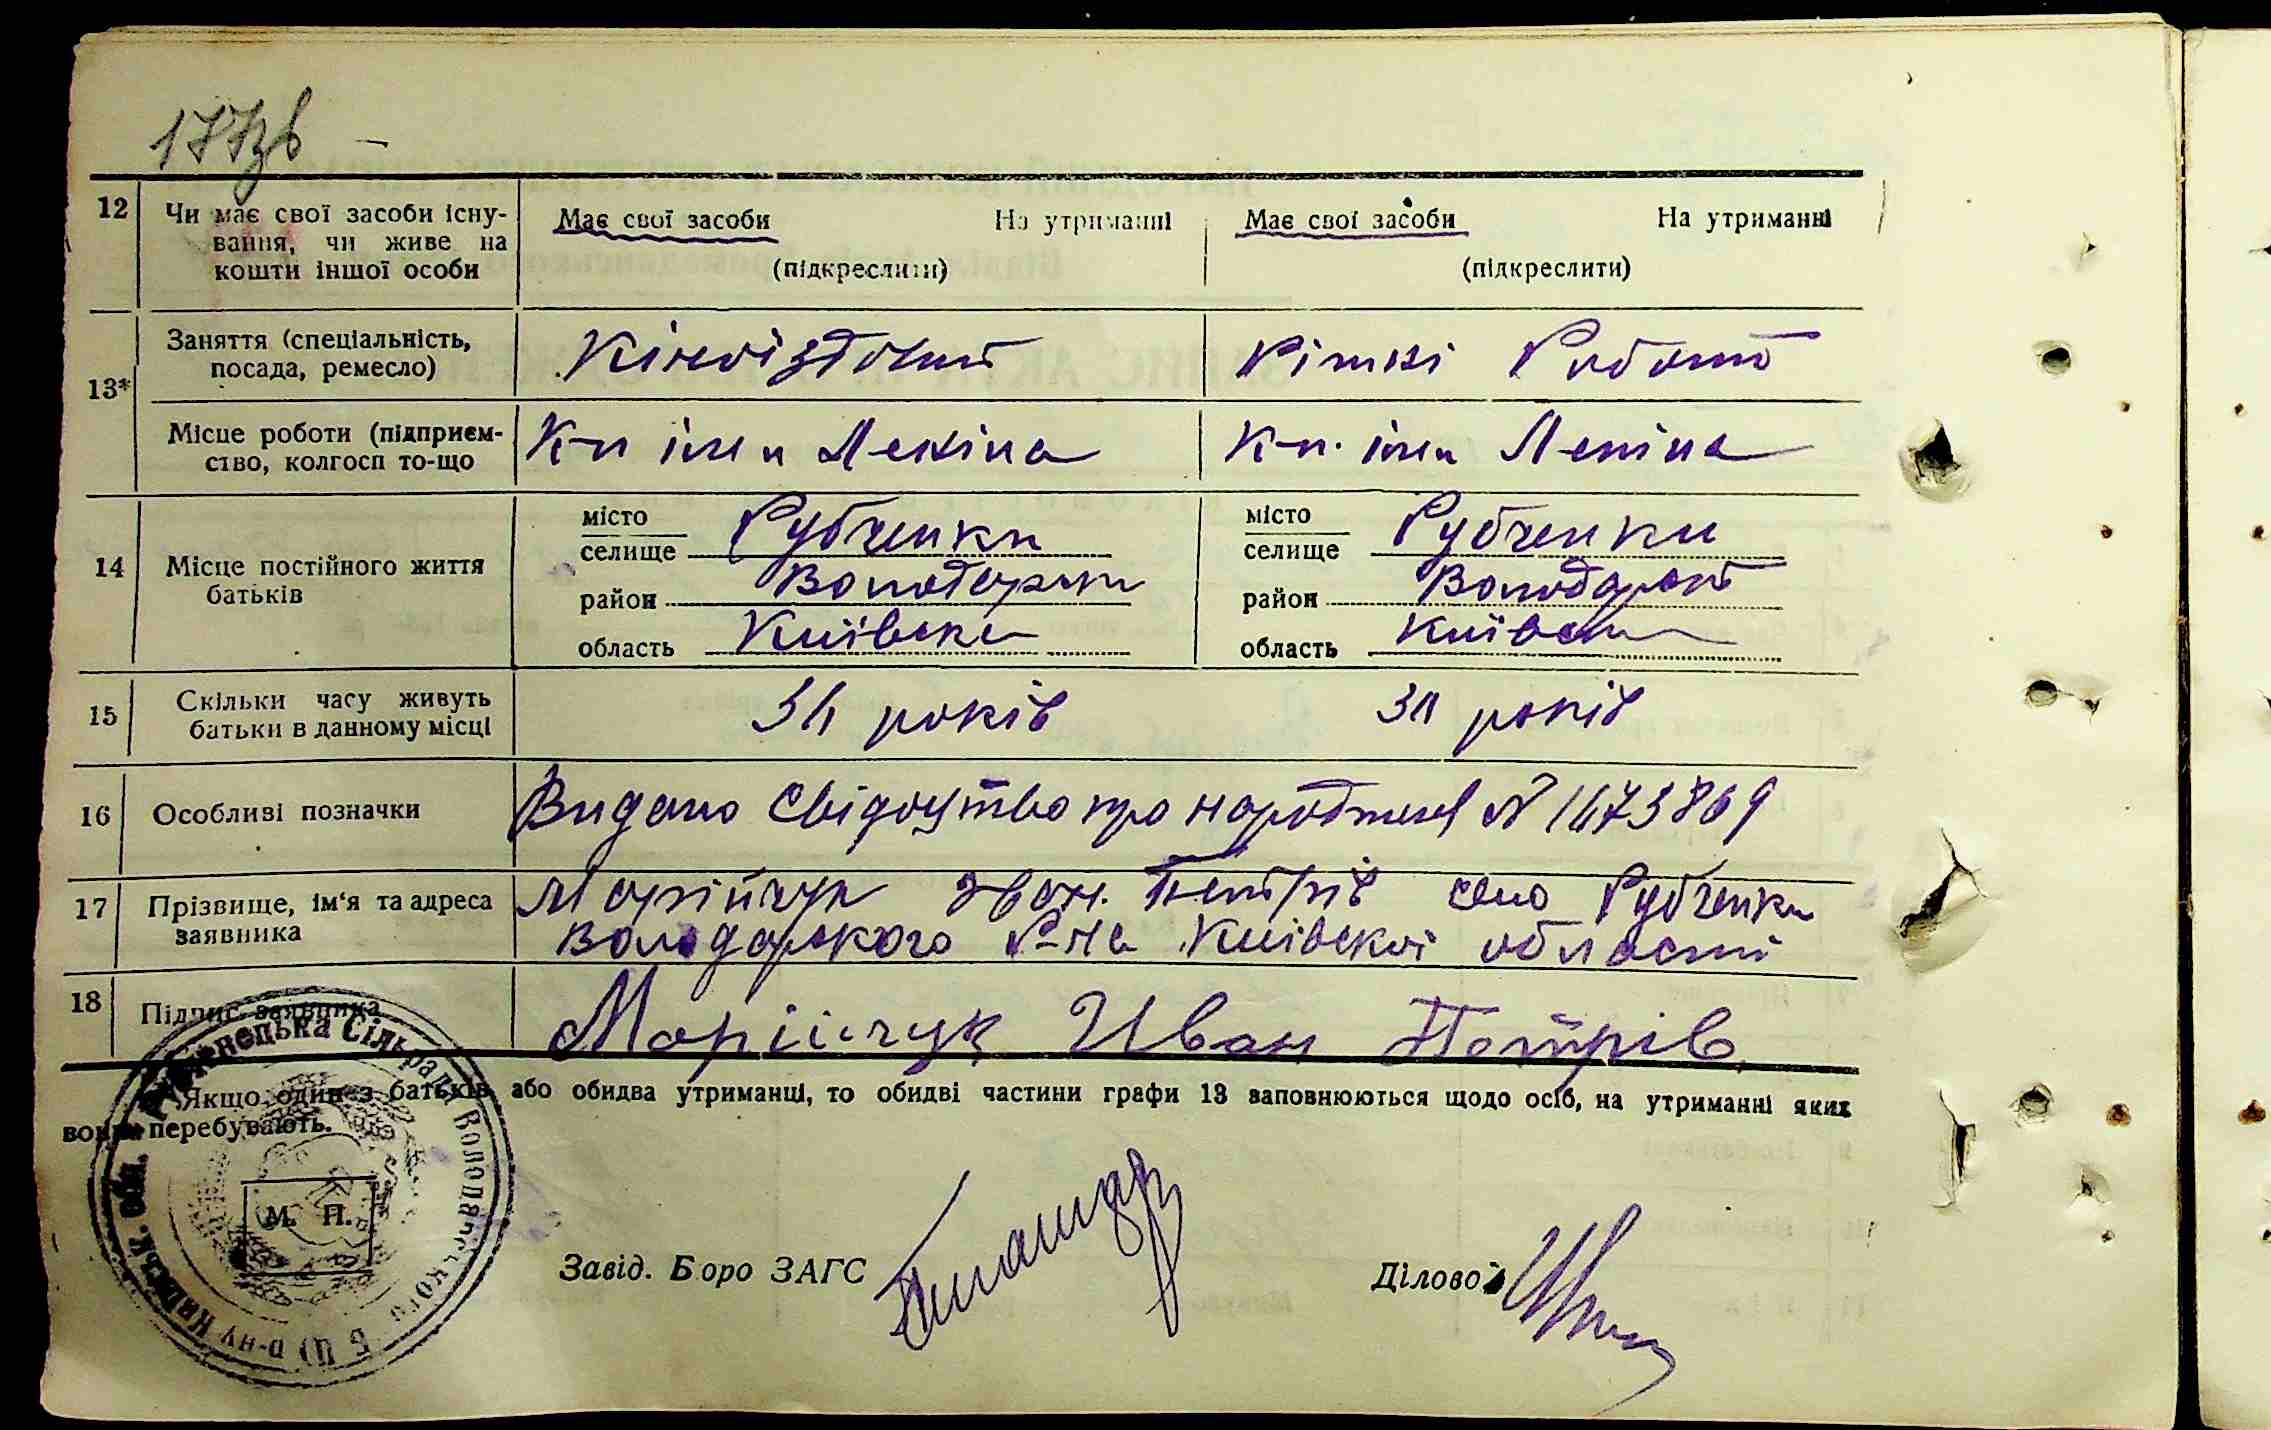 177зв
12 Чи має свої засоби існування, чи живе на кошти іншої особи
Має свої засоби На утриманні
(підкреслити)
Має свої засоби На утриманні
(підкреслити)
13*
Заняття (спеціальність, посада, ремесло)
Кіноіздовий
Ріжні Роботи
Місце роботи (підприємство, колгосп то-що
К-п імен Леніна
К-п. імен Леніна
14 Місце постійного життя батьків
місто
селище Рубченки
район Володарськ
область Київська
місто
селище Рубченки
район Володарськ
область Київськ
15 Скільки часу живуть батьки в данному місці
років
років
16 Особливі позначки
Видано Свідоцтво про народжен N 1673869
17 Прізвище, ім'я та адреса заявника
Марійчук Іван. Петрів село Рубченки
Володарского Р-на Київскої області
18 Підпис заявника
Марійчук Иван Петрів
Якщо один з батьків або обидва утриманці, то обидві частини графи 13 заповнюються щодо осіб, на утриманні яких
вони перебувають.
Рубченецька Сільрада Володарського Б(Ц) р-ну Київськ. обл.
М. П.
Завід. Бюро ЗАГС
Діловод